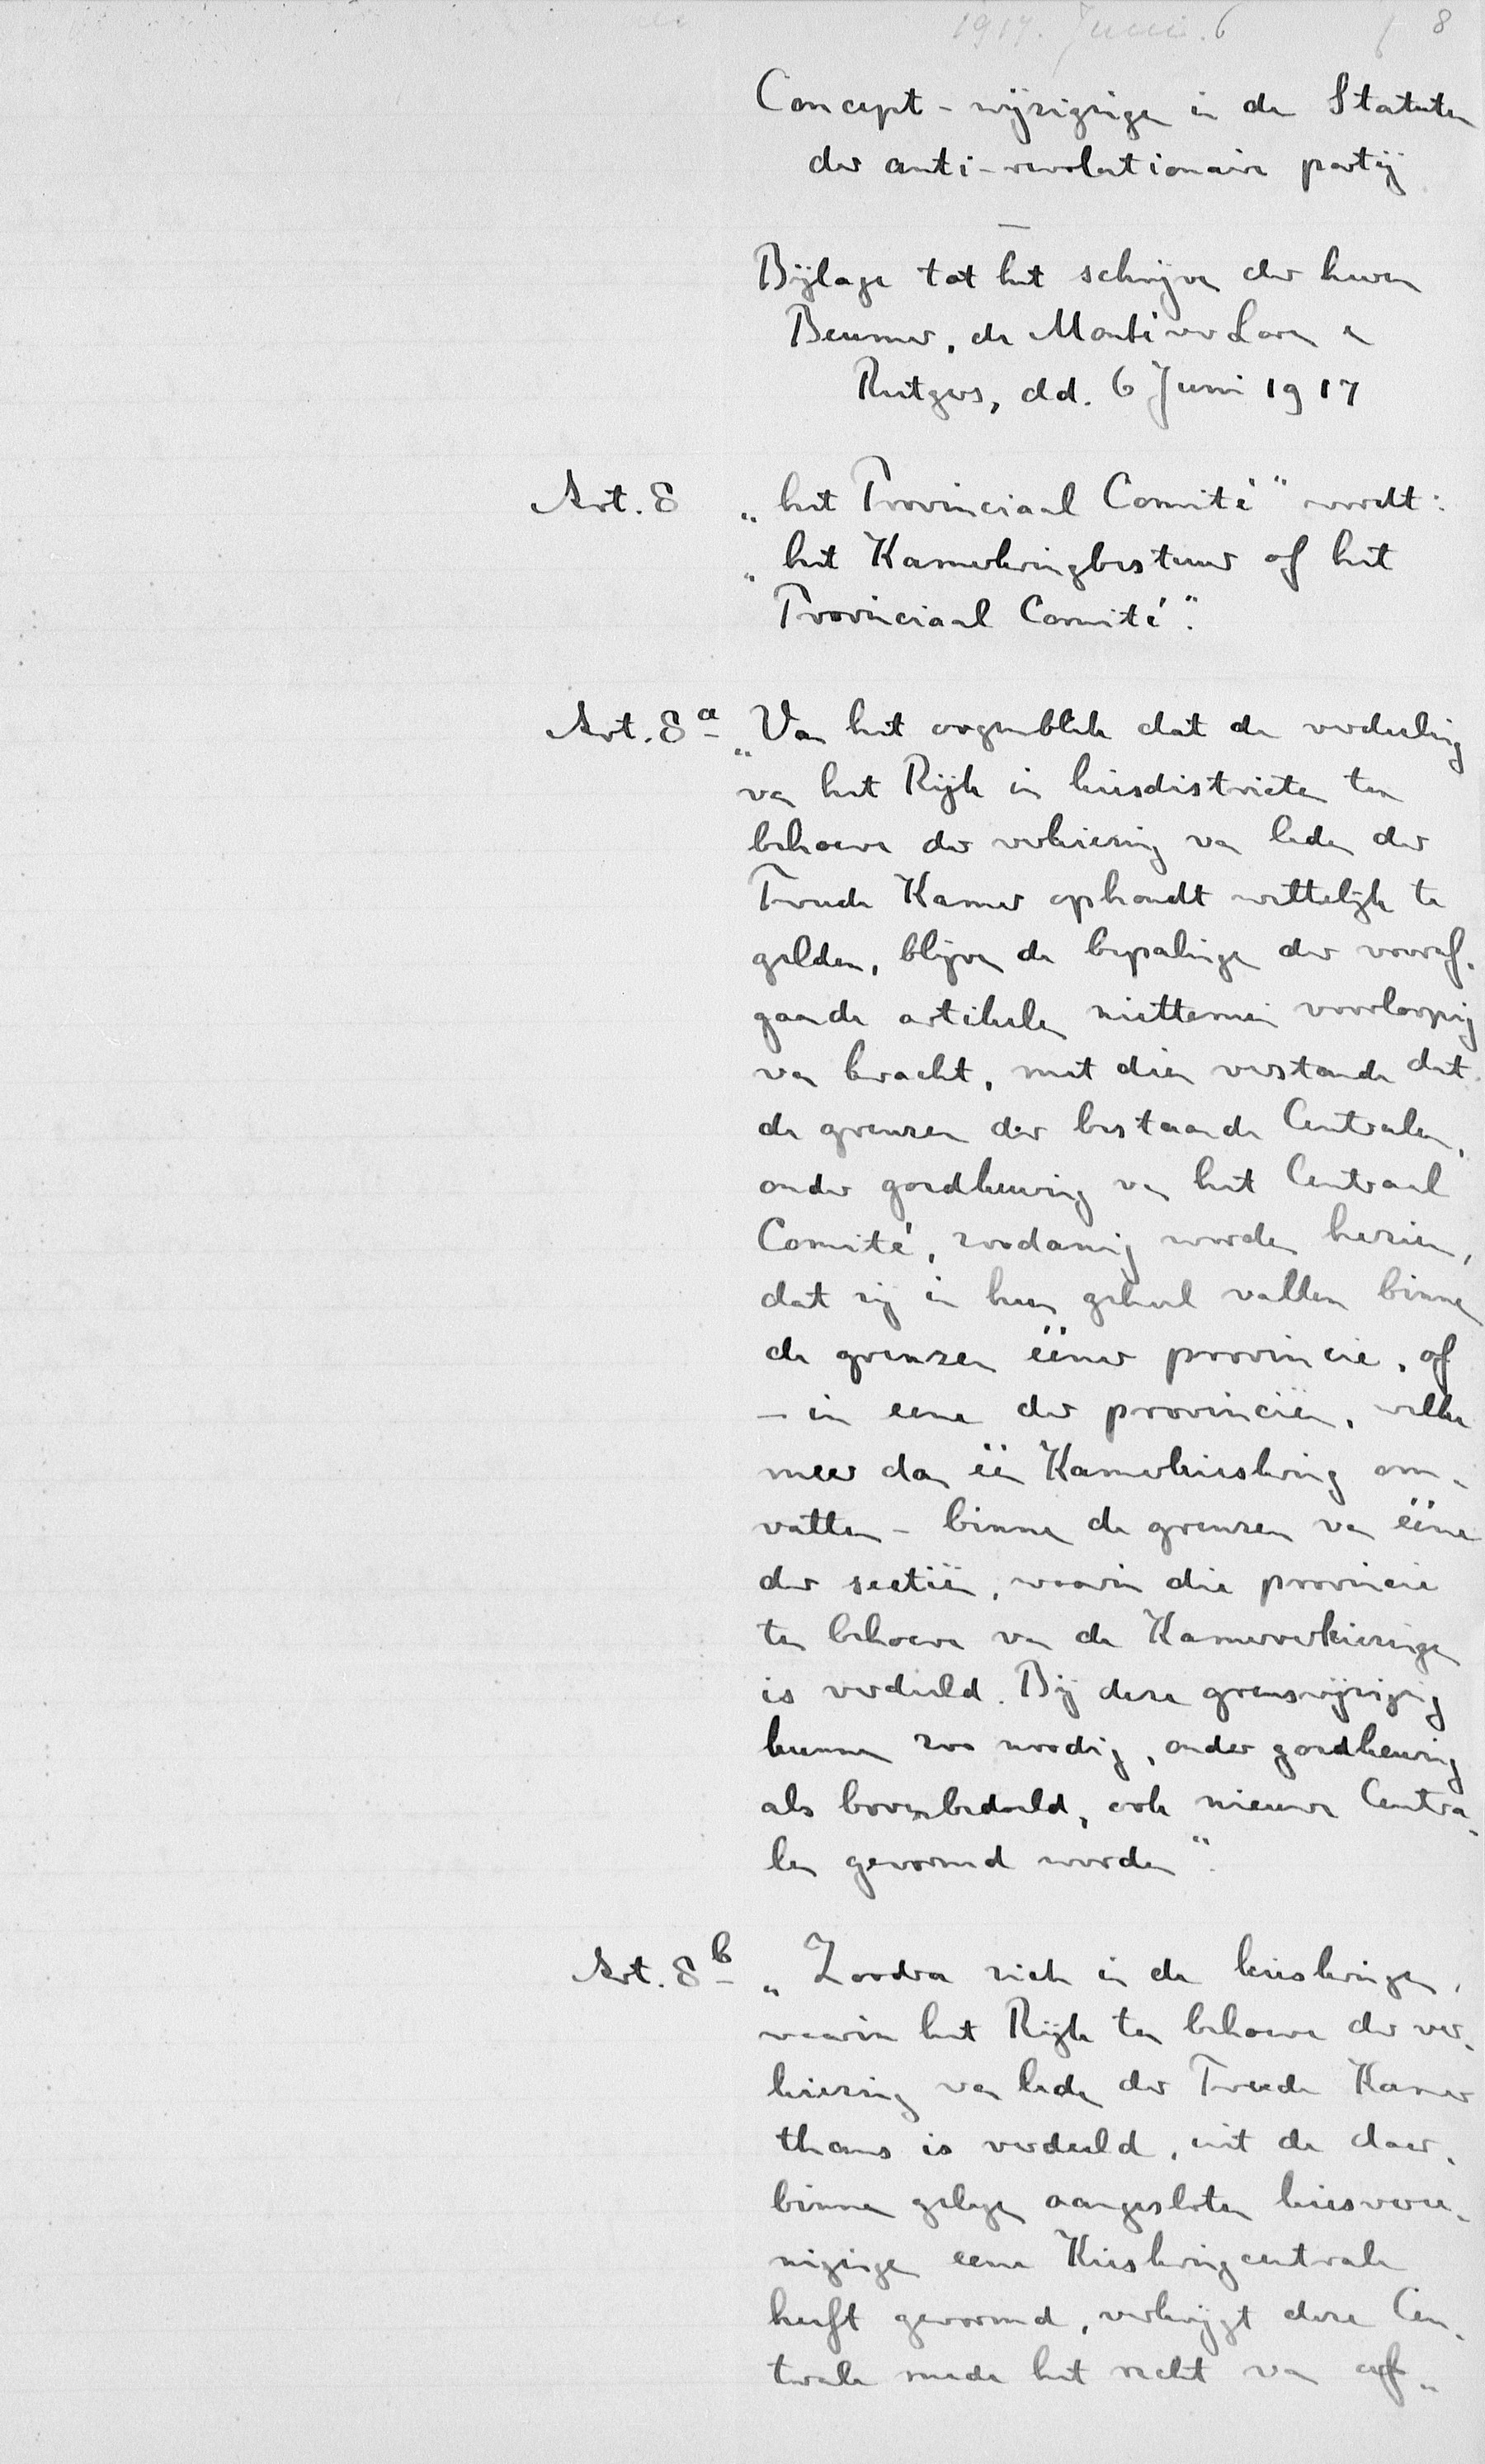 1917. Juni. 6 8
Concept-wijzigingen in de Statuten
der anti-revolutionaire partij
—
Bijlage tot het schrijven der heeren
Beumer, de Monté verLoren en
Rutgers, dd. 6 Juni 1917
Art. 8 „het Provinciaal Comité" wordt:
„het Kamerkringbestuur of het
Provinciaal Comité".
Art. 8a „Van het oogenblik dat de verdeeling
van het Rijk in kiesdistricten ten
behoeve der verkiezing van leden der
Tweede Kamer ophoudt wettelijk te
gelden, blijven de bepalingen der vooraf-
gaande artikelen niettemin voorloopig
van kracht, met dien verstande dat
de grenzen der bestaande Centralen,
onder goedkeuring van het Centraal
Comité, zoodanig worden herzien,
dat zij in hun geheel vallen binnen
de grenzen ééner provincie, of
— in eene der provinciën, welke
meer dan één Kamerkieskring om-
vatten — binnen de grenzen van ééne
der sectiën, waarin die provincie
ten behoeve van de Kamerverkiezingen
is verdeeld. Bij deze grenswijziging
kunnen zoo noodig, onder goedkeuring
als bovenbedoeld, ook nieuwe Centra-
len gevormd worden".
Art. 8b „Zoodra zich in de kieskringen,
waarin het Rijk ten behoeve der ver-
kiezing van leden der Tweede Kamer
thans is verdeeld, uit de daar-
binnen gelegen aangesloten kiesveree-
nigingen eene Kieskringcentrale
heeft gevormd, verkrijgt deze Cen-
trale mede het recht van af-